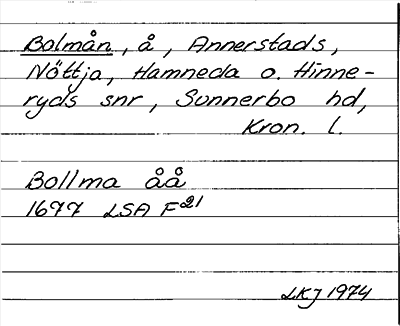 Bolmån, å, Annerstads,
Nöttja, Hamneda o. Hinne-
ryds snr, Sunnerbo hd,
Kron. l.
Bollma åå
1677 LSA F21
LKJ 1974